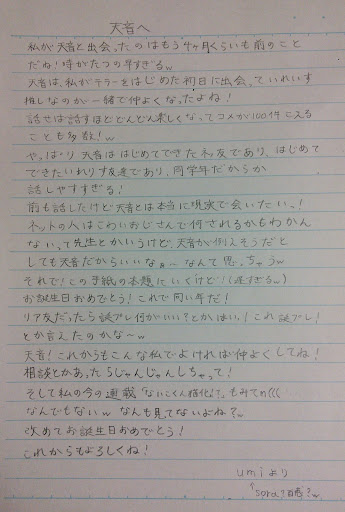 天音へ
私が天音と出会ったのはもう4ヶ月くらいも前のこと
だね!時がたつの早すぎるw
天音は、私がテラーをはじめた初日に出会っていれいす
推しなのが一緒で仲よくなったよね!
話せば話すほどどんどん楽しくなってコメが100件こえる
ことも多数!w
やっぱり天音ははじめてできたネ友であり、はじめて
できたいれりす友達であり、同学年だからか
話しやすすぎる!
前も話したけど天音とは本当に現実で会いたいっ!
ネットの人はこわいおじさんで何されるかもわかん
ないって先生とかいうけど、天音が例えそうだと
しても天音だからいいなぁ〜なんて思っちゃうw
それで!この手紙の本題にいくけど!(遅すぎるw)
お誕生日おめでとう!これで同い年だ!
リア友だったら誕プレ何がいい?とか はいっ!これ誕プレ!
とか言えたのかな〜w
天音!これからもこんな私でよければ仲よくしてね!
相談とかあったらじゃんじゃんしちゃって!
そして私の今の連載「ないこくん猫化!?」もみてね(((
なんでもないw なんも見てないよね?w
改めてお誕生日おめでとう!
これからもよろしくね!
umiより
↑sora?